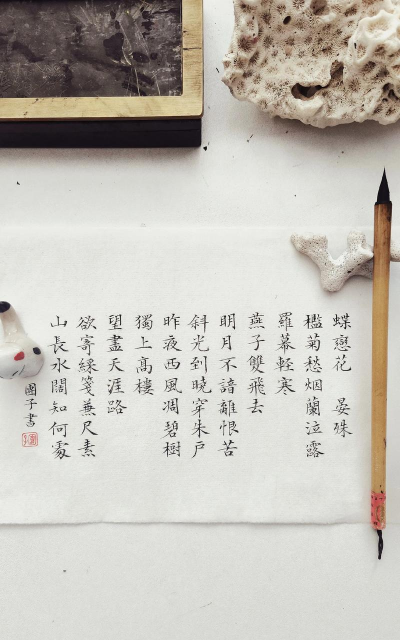 蝶戀花　晏殊
檻菊愁烟蘭泣露
羅幕輕寒
燕子雙飛去
明月不諳離恨苦
斜光到曉穿朱戶
昨夜西風凋碧樹
獨上高樓
望盡天涯路
欲寄綵箋兼尺素
山長水闊知何處
國子書